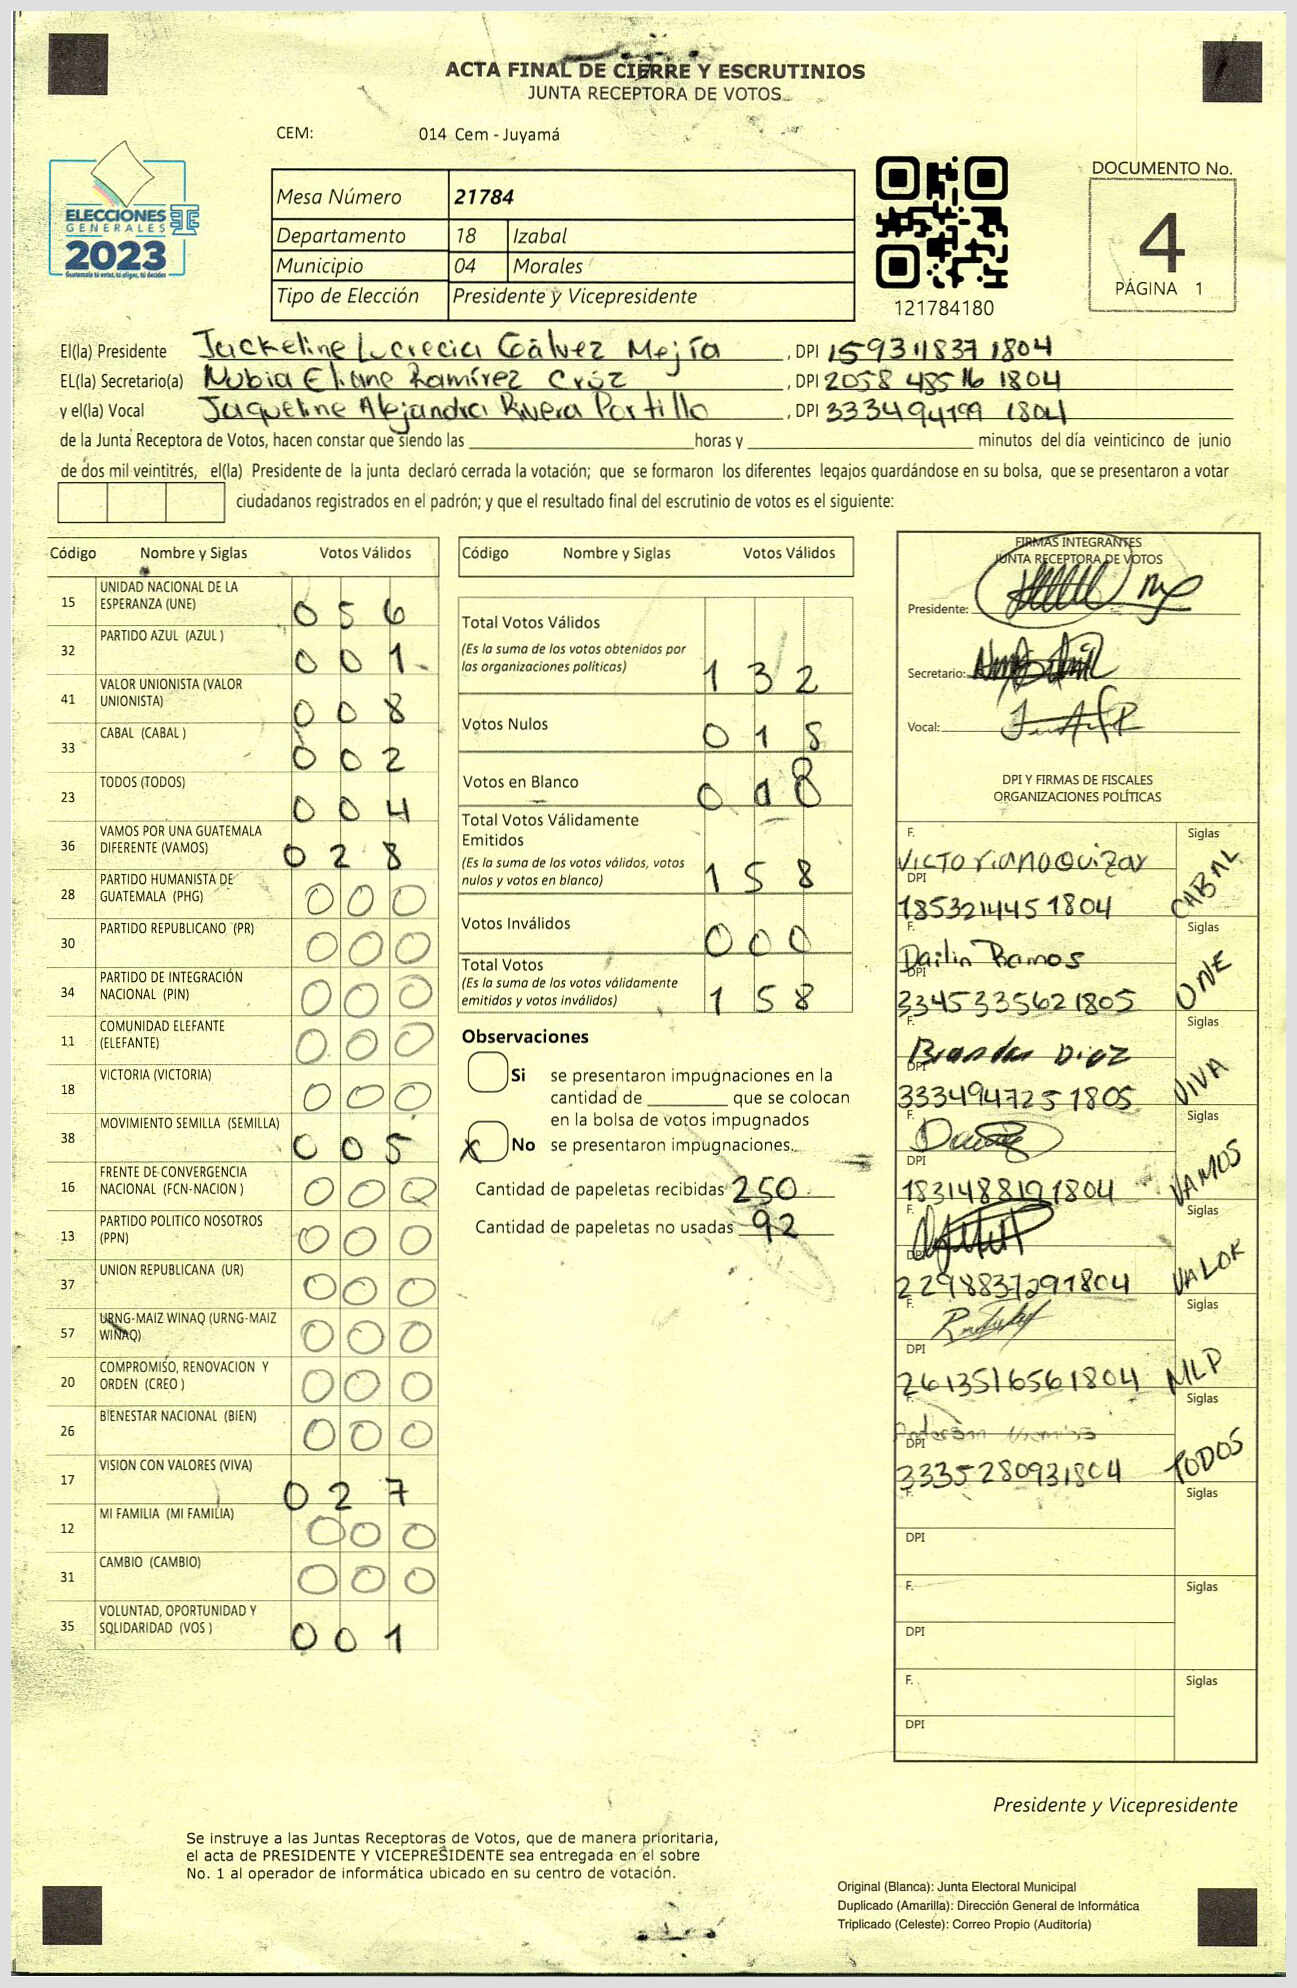 ACTA FINAL DE CIERRE Y ESCRUTINIOS
JUNTA RECEPTORA DE VOTOS
CEM: 014 Cem - Juyamá
ELECCIONES
GENERALES
2023
Guatemala tú votas, tú eliges, tú decides
Mesa Número 21784
Departamento 18 Izabal
Municipio 04 Morales
Tipo de Elección Presidente y Vicepresidente
121784180
DOCUMENTO No.
4
PÁGINA 1
El(la) Presidente Jackeline Lucrecia Gálvez Mejía, DPI 159311837 1804
EL(la) Secretario(a) Nubia Eliane Ramírez Crúz, DPI 2058 48516 1804
y el(la) Vocal Jaqueline Alejandra Rivera Portillo, DPI 333494799 1804
de la Junta Receptora de Votos, hacen constar que siendo las ____ horas y ____ minutos del día veinticinco de junio
de dos mil veintitrés, el(la) Presidente de la junta declaró cerrada la votación; que se formaron los diferentes legajos guardándose en su bolsa, que se presentaron a votar
ciudadanos registrados en el padrón; y que el resultado final del escrutinio de votos es el siguiente:
Código Nombre y Siglas Votos Válidos
15 UNIDAD NACIONAL DE LA ESPERANZA (UNE) 056
32 PARTIDO AZUL (AZUL ) 001
41 VALOR UNIONISTA (VALOR UNIONISTA) 008
33 CABAL (CABAL ) 002
23 TODOS (TODOS) 004
36 VAMOS POR UNA GUATEMALA DIFERENTE (VAMOS) 028
28 PARTIDO HUMANISTA DE GUATEMALA (PHG) 000
30 PARTIDO REPUBLICANO (PR) 000
34 PARTIDO DE INTEGRACIÓN NACIONAL (PIN) 000
11 COMUNIDAD ELEFANTE (ELEFANTE) 000
18 VICTORIA (VICTORIA) 000
38 MOVIMIENTO SEMILLA (SEMILLA) 005
16 FRENTE DE CONVERGENCIA NACIONAL (FCN-NACION ) 000
13 PARTIDO POLITICO NOSOTROS (PPN) 000
37 UNION REPUBLICANA (UR) 000
57 URNG-MAIZ WINAQ (URNG-MAIZ WINAQ) 000
20 COMPROMISO, RENOVACION Y ORDEN (CREO ) 000
26 BIENESTAR NACIONAL (BIEN) 000
17 VISION CON VALORES (VIVA) 027
12 MI FAMILIA (MI FAMILIA) 000
31 CAMBIO (CAMBIO) 000
35 VOLUNTAD, OPORTUNIDAD Y SOLIDARIDAD (VOS ) 001
Código Nombre y Siglas Votos Válidos
Total Votos Válidos 132
(Es la suma de los votos obtenidos por
las organizaciones políticas)
Votos Nulos 018
Votos en Blanco 008
Total Votos Válidamente
Emitidos 158
(Es la suma de los votos válidos, votos
nulos y votos en blanco)
Votos Inválidos 000
Total Votos 158
(Es la suma de los votos válidamente
emitidos y votos inválidos)
Observaciones
Si se presentaron impugnaciones en la
cantidad de ____ que se colocan
en la bolsa de votos impugnados
X No se presentaron impugnaciones.
Cantidad de papeletas recibidas 250
Cantidad de papeletas no usadas 92
FIRMAS INTEGRANTES
JUNTA RECEPTORA DE VOTOS
Presidente:
Secretario:
Vocal:
DPI Y FIRMAS DE FISCALES
ORGANIZACIONES POLÍTICAS
F. Victoriano Quizay Siglas CABAL
DPI 1853214451804
F. Dailin Ramos Siglas UNE
DPI 3345335621805
F. Brandon Diaz Siglas VIVA
DPI 3334947251805
F. Siglas VAMOS
DPI 1831488191804
F. Siglas VALOR
DPI 2298837291804
F. Siglas MLP
DPI 2613516561804
F. Anderson Siglas TODOS
DPI 3335280931804
F. Siglas
DPI
F. Siglas
DPI
F. Siglas
DPI
Presidente y Vicepresidente
Se instruye a las Juntas Receptoras de Votos, que de manera prioritaria,
el acta de PRESIDENTE Y VICEPRESIDENTE sea entregada en el sobre
No. 1 al operador de informática ubicado en su centro de votación.
Original (Blanca): Junta Electoral Municipal
Duplicado (Amarilla): Dirección General de Informática
Triplicado (Celeste): Correo Propio (Auditoría)